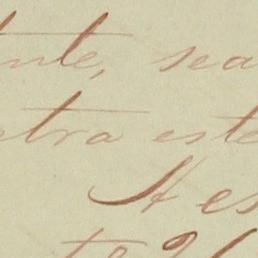 nte, sea
ntra este
A es